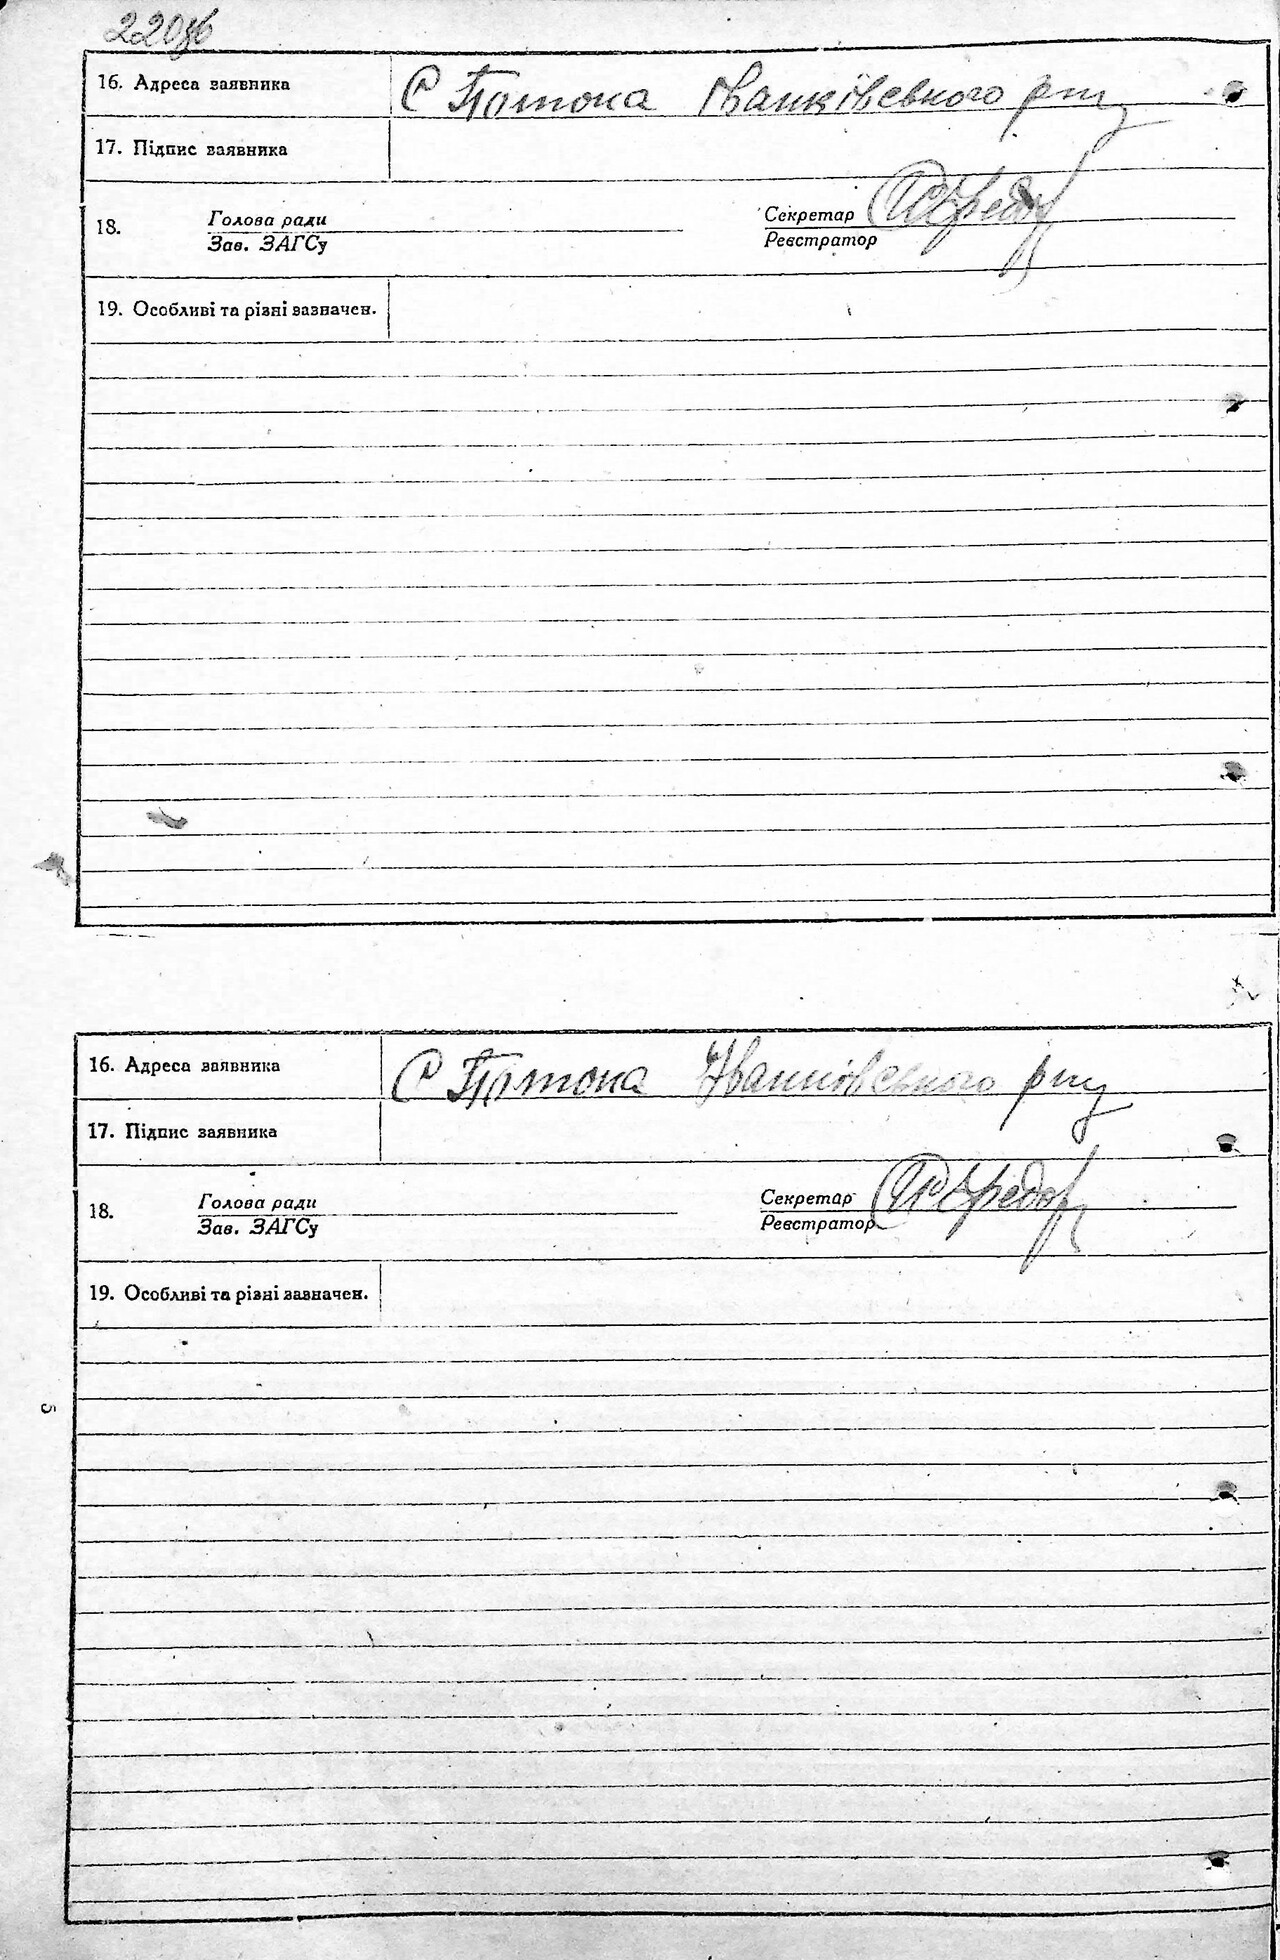 220зв
16. Адреса заявника С Потока Іванківського рну
17. Підпис заявника
18. Голова ради Секретар
Зав. ЗАГСу Реєстратор
19. Особливі та різні зазначен.
16. Адреса заявника С Потока Іванківського рну
17. Підпис заявника
18. Голова ради Секретар
Зав. ЗАГСу Реєстратор
19. Особливі та різні зазначен.
5